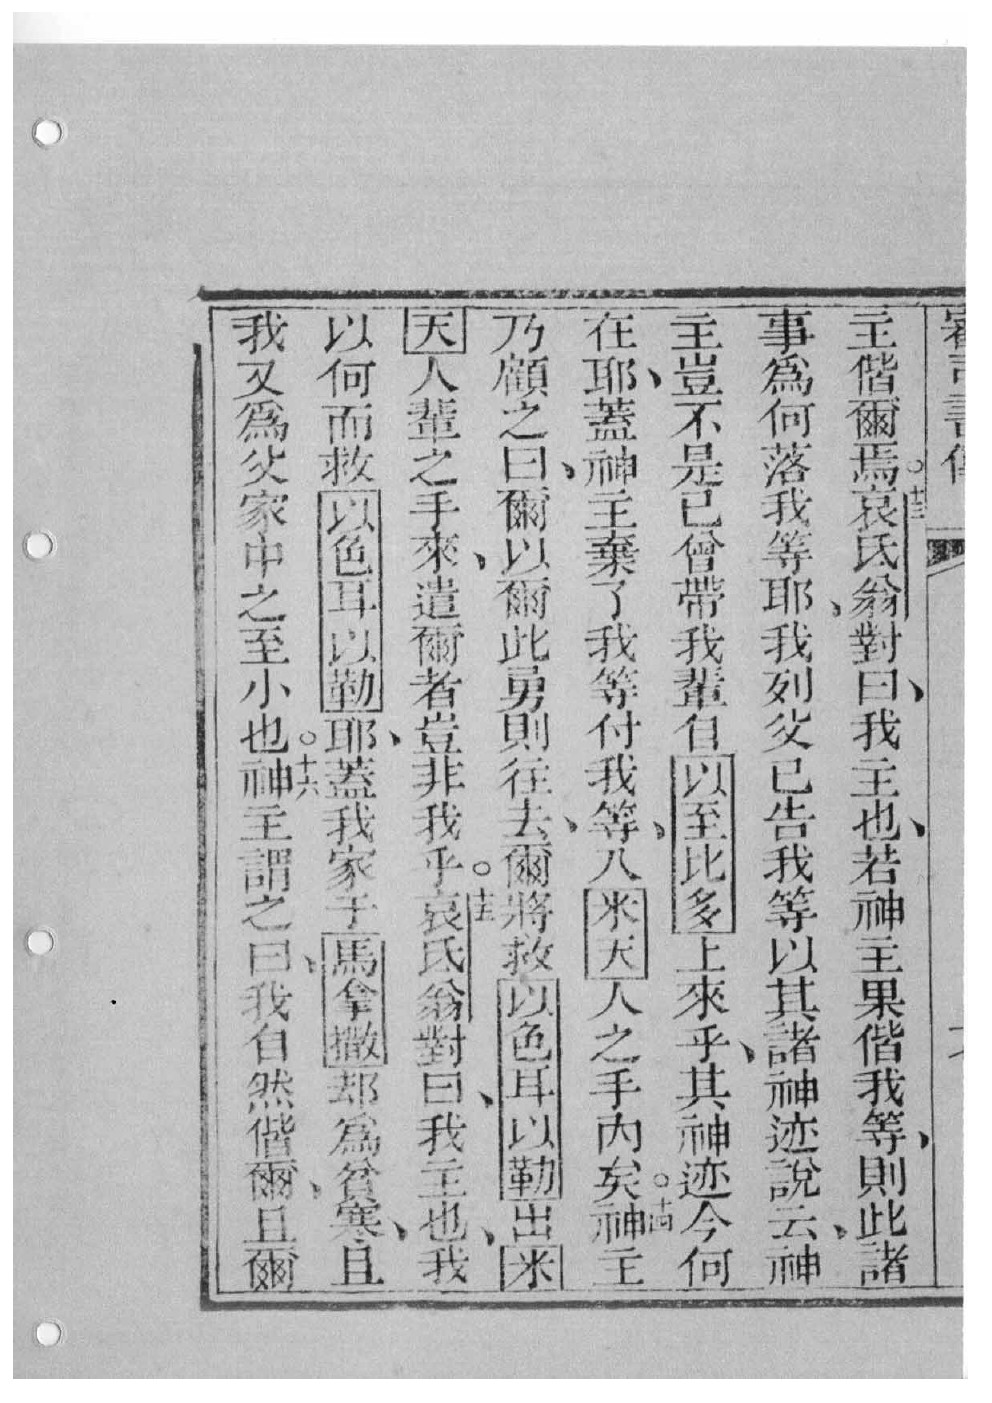 審司書傳
主偕爾焉。十三哀氐翁對曰、我主也、若神主果偕我等、則此諸
事爲何落我等耶、我列父已告我等以其諸神迹說云、神
主豈不是已曾帶我輩自以至比多上來乎、其神迹今何
在耶、蓋神主棄了我等付我等、入米天人之手內矣。十四神主
乃顧之曰、爾以爾此勇則往去、爾將救以色耳以勒出米
天人輩之手來、遣爾者豈非我乎。十五哀氐翁對曰、我主也、我
以何而救以色耳以勒耶、蓋我家于馬拿撒却爲貧寒、且
我又爲父家中之至小也。十六神主謂之曰、我自然偕爾、且爾